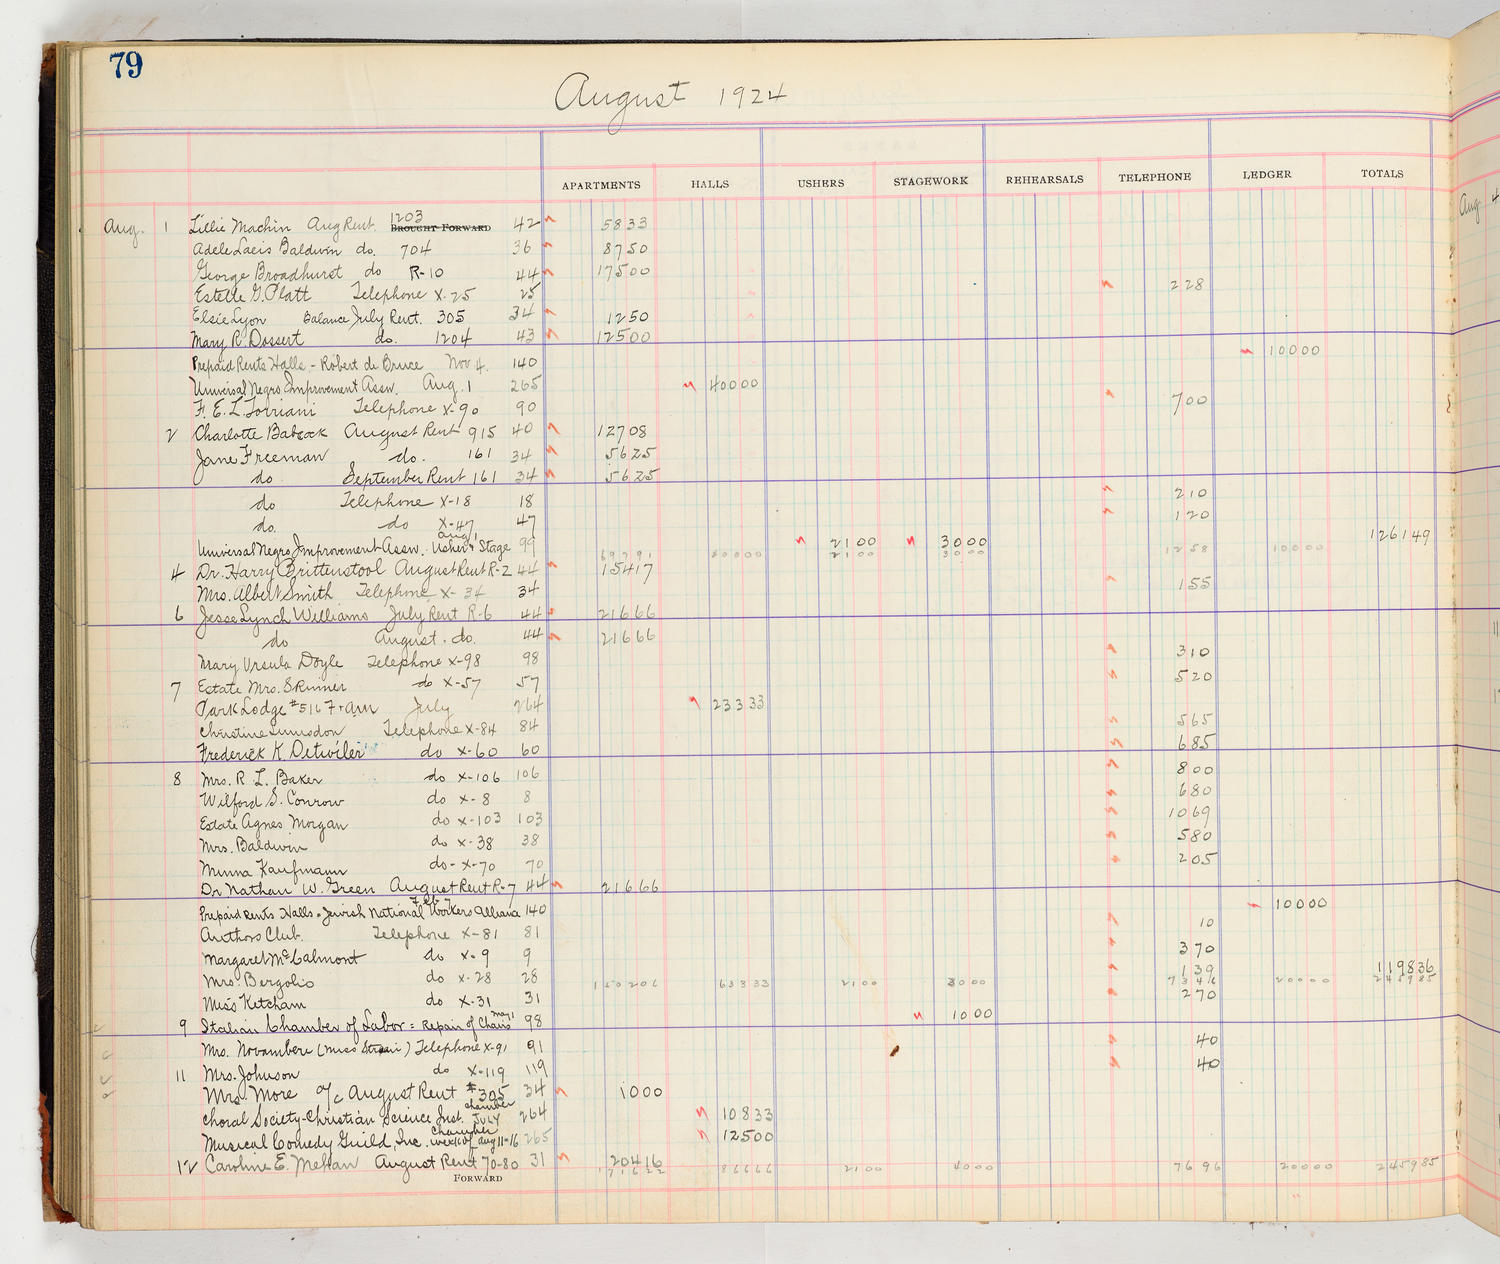 79
August 1924
APARTMENTS HALLS USHERS STAGEWORK REHEARSALS TELEPHONE LEDGER TOTALS
Aug. 1 Lillie Machin Aug Rent. 1203 BROUGHT FORWARD 42 5833
Adele Laeis Baldwin do. 704 36 8750
George Broadhurst do R-10 44 17500
Estelle G. Platt Telephone X-25 25 228
Elsie Lyon Balance July Rent. 305 34 1250
Mary R. Dossert do. 1204 43 12500
Prepaid Rents Halls - Robert de Bruce Nov 4. 140 10000
Universal Negro Improvement Assn. Aug. 1 265 40000
F. E. L. Torriani Telephone X-90 90 700
2 Charlotte Babcock August Rent 915 40 12708
Jane Freeman do. 161 34 5625
do September Rent 161 34 5625
do Telephone X-18 18 210
do. do X-47 47 120
Universal Negro Improvement Assn. Aug 1 Ushers Stage 99 2100 3000 126149
69291 40000 2100 3000 1258 10000
4 Dr. Harry Brittenstool August Rent R-2 44 15417
Mrs. Albert Smith Telephone X-34 34 155
6 Jesse Lynch Williams July Rent R-6 44 21666
do August. do. 44 21666
Mary Ursula Doyle Telephone X-98 98 310
7 Estate Mrs. Skinner do X-57 57 520
Park Lodge #516 F+AM July 264 23333
Christine Telephone X-84 84 565
Frederick K. Detwiler do X-60 60 685
8 Mrs. R. L. Baker do X-106 106 800
Wilford S. Conrow do X-8 8 680
Estate Agnes Morgan do X-103 103 1069
Mrs. Baldwin do X-38 38 580
Minna Kaufmann do- X-70 70 205
Dr Nathan W. Green August Rent R-7 44 21666
Prepaid Rents Halls - Jewish National Workers Alliance Feb 7 140 10000
Authors Club. Telephone X-81 81 10
Margaret McCalmont do X-9 9 370
Mrs. Bergolio do X-28 28 139 119836
150206 63333 2100 3000 7346 20000 245985
Miss Ketcham do X-31 31 270
9 Italian Chamber of Labor = Repair of Chairs May 1 98 1000
Mrs. Novambere (Miss ) Telephone X-91 91 40
11 Mrs. Johnson do X-119 119 40
Mrs. More a/c August Rent #305 34 1000
Choral Society-Christian Science Inst. Chamber July 264 10833
Musical Comedy Guild, Inc. Chamber week of Aug 11-16 265 12500
12 Caroline E. Mehan August Rent 70-80 31 20416
171622 86666 2100 4000 7696 20000 245985
FORWARD
Aug. 4